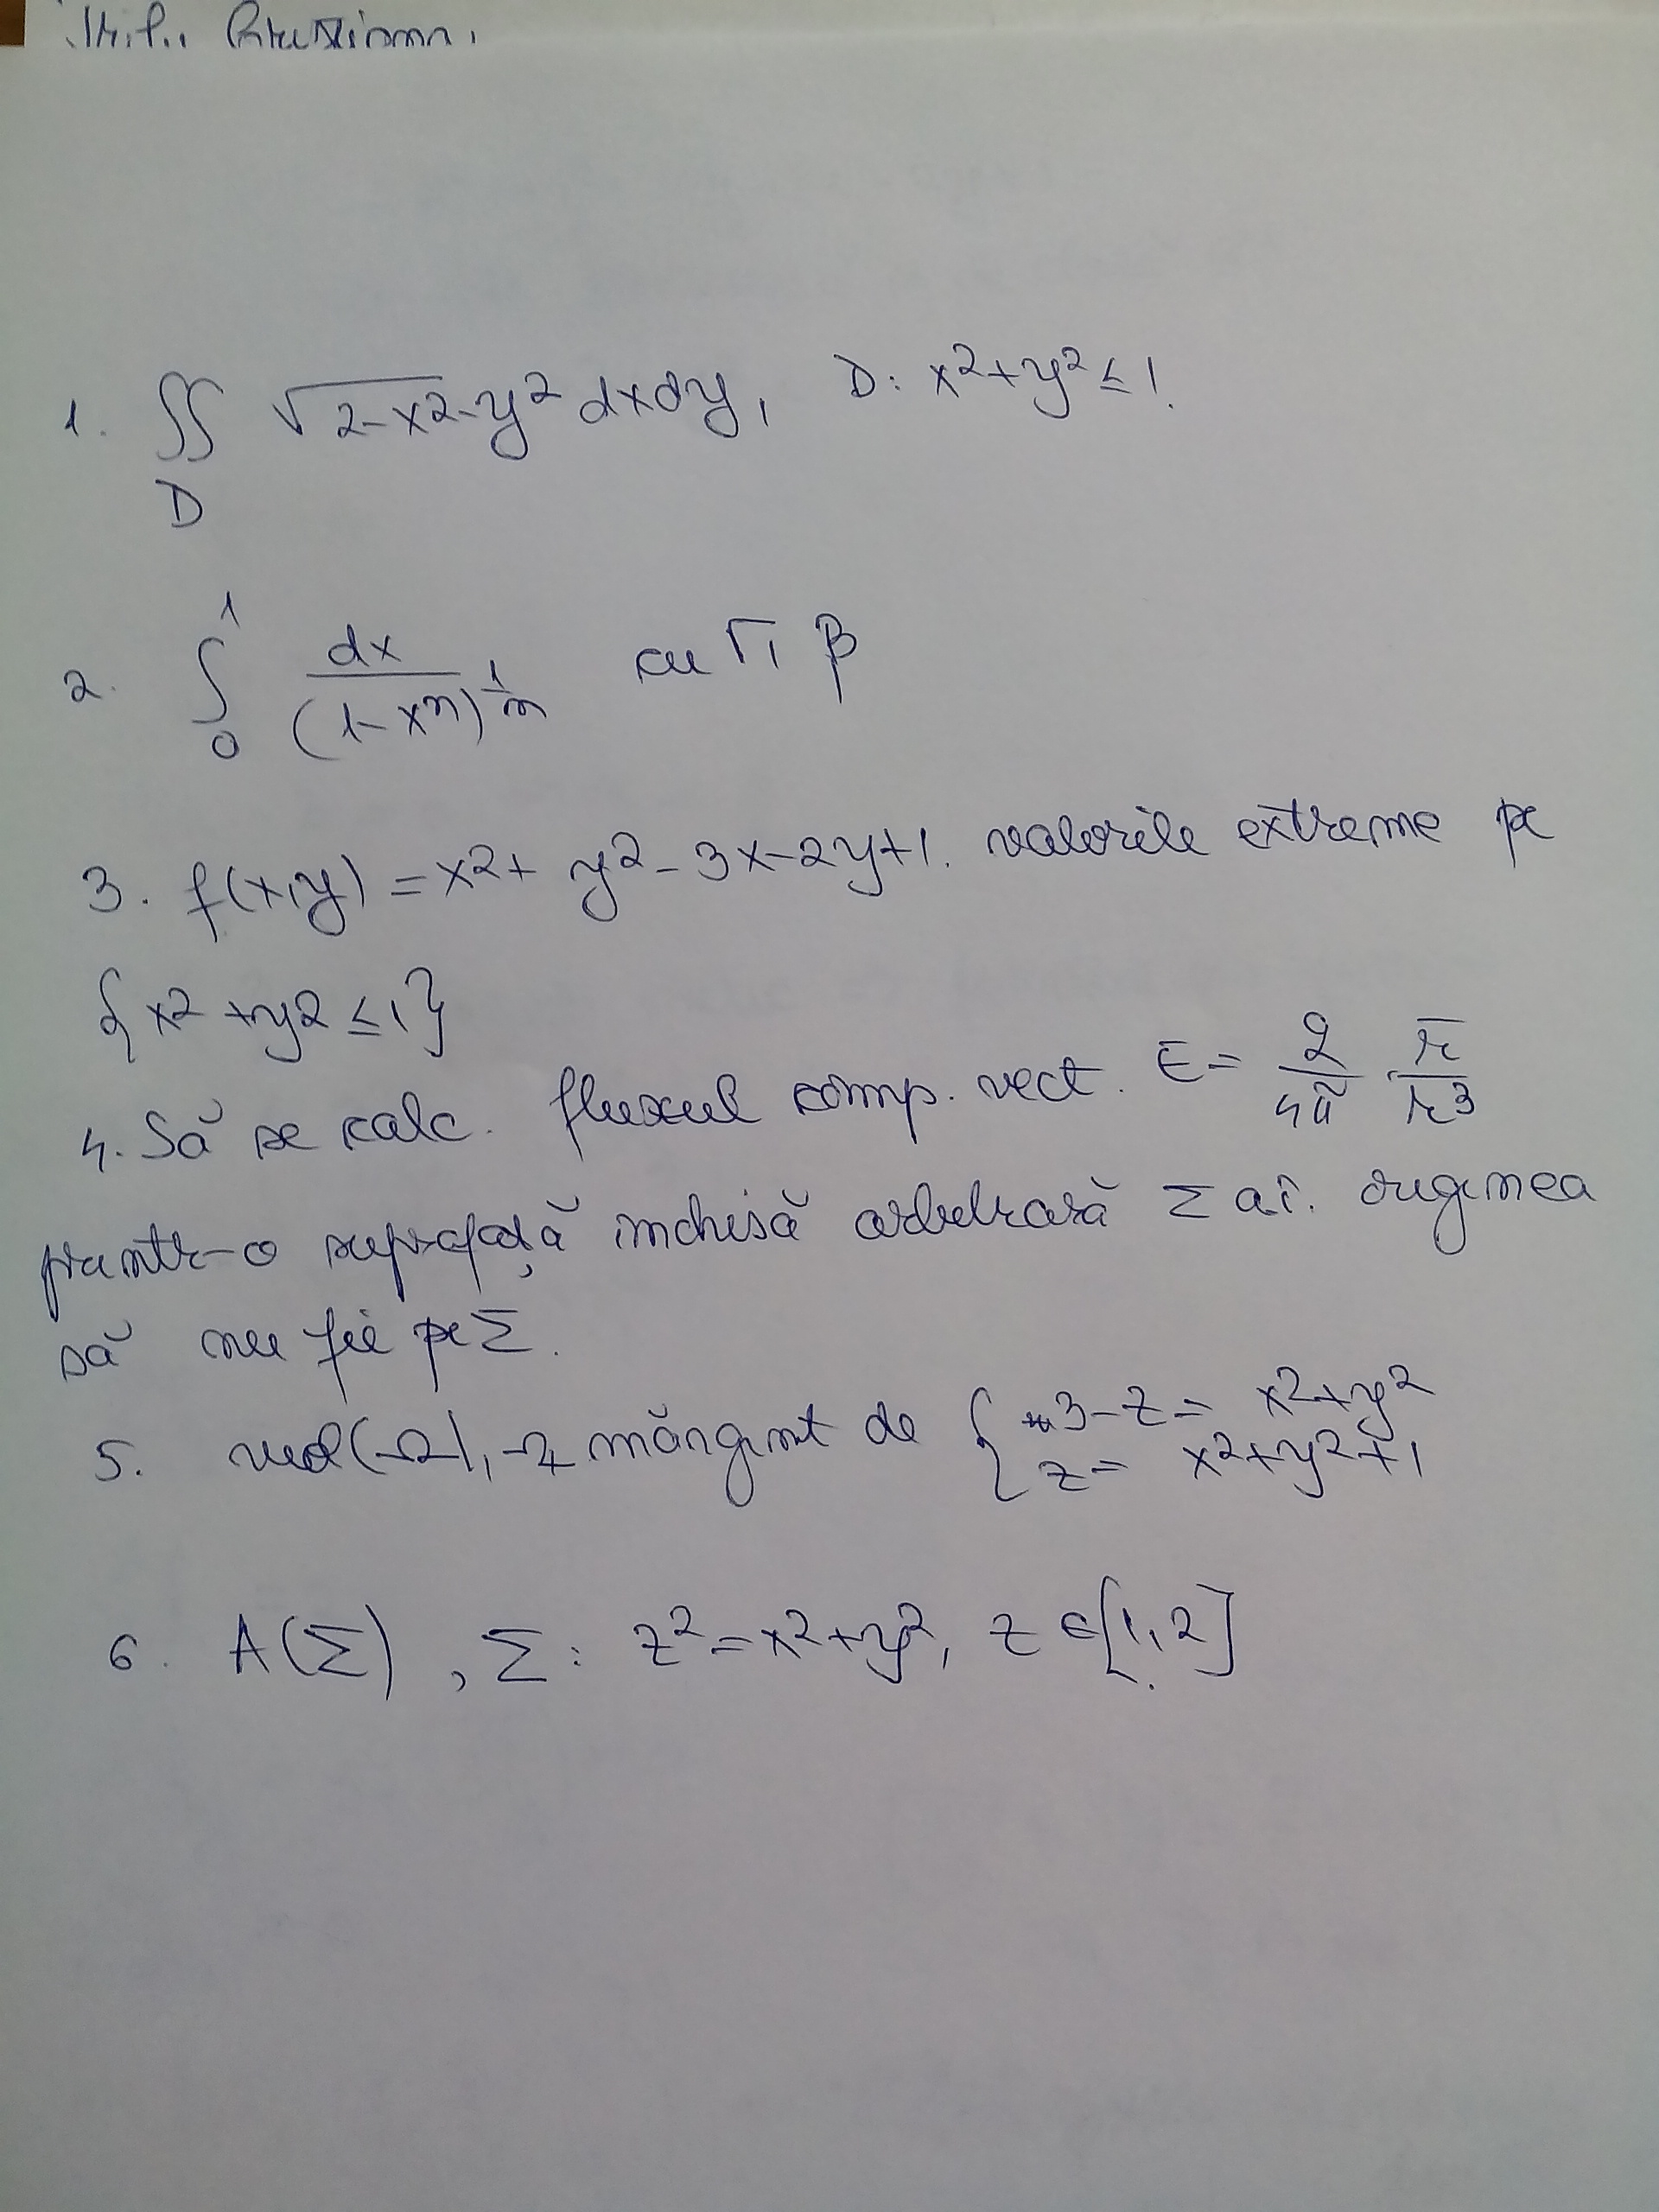 1. ∬ √2-x²-y² dxdy, D: x²+y² ≤ 1.
D
2. ∫₀¹ dx/(1-xⁿ)^(1/n) cu Γ, β
3. f(x,y) = x²+ y²-3x-2y+1. valorile extreme pe
{x²+y² ≤ 1}
4. Să se calc. fluxul comp. vect. E = q/4π · r̄/r³
printr-o suprafață inchisă arbitrară Σ aî. originea
să nu fie pe Σ.
5. vol(Ω), Ω mărginit de { 3-z = x²+y²
z = x²+y²+1
6. A(Σ), Σ: z²=x²+y², z ∈ [1,2]